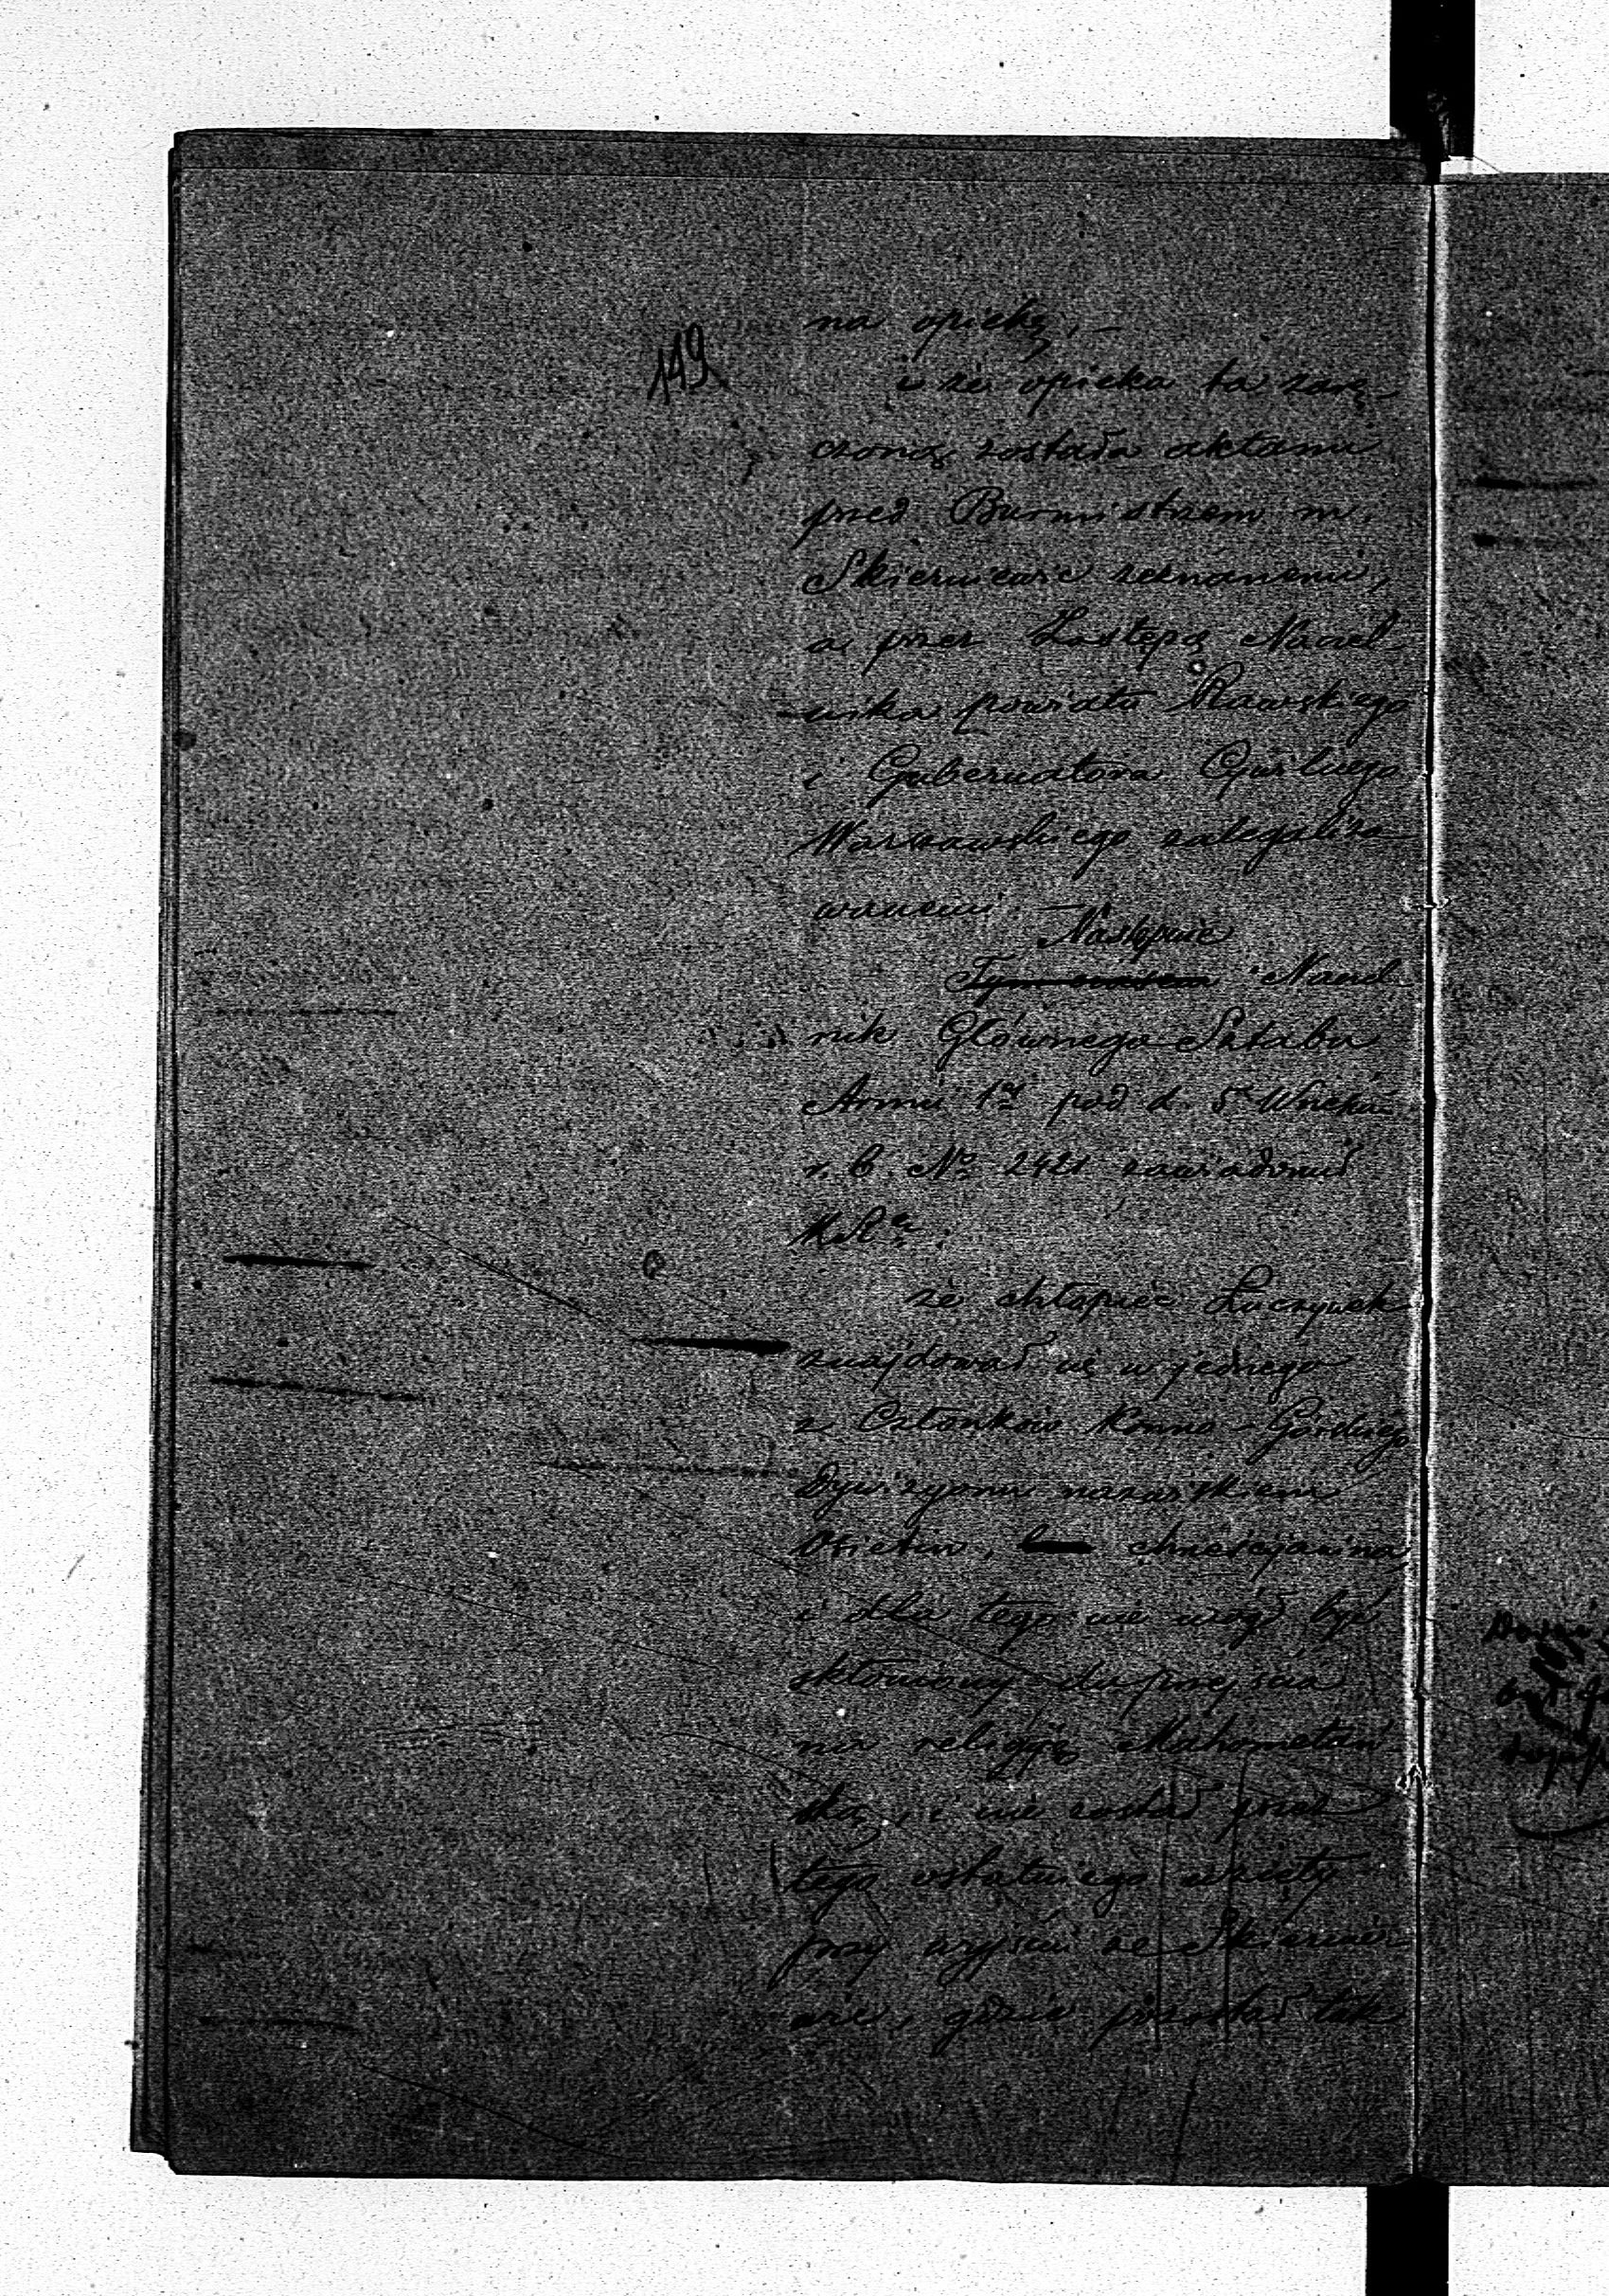 149
na opiekę, —
i że opieka ta zarę-
czoną została aktami
przed Burmistrzem m.
Skierniewic zeznanemi,
a przez Zastępcę Naczel-
nika powiatu Rawskiego
i Gubernatora Cywilnego
Warszawskiego zalegalizo-
wanemi. —
Następnie
Tymczasem Naczel-
nik Głównego Sztabu
Armii 1éj pod d. 5 Września
r. b. No 2421 zawiadomił
że chłopiec Luczywek
znajdował się u jednego
z Członków Konno-Górskiego
Dywizyonu nazwiskiem
chrześcijanina,
i dla tego nie mógł być
skłoniony do przejścia
na religiję Mahometań-
ską, i nie został przez
tego ostatniego wzięty
przy wyjściu ze Skiernie-
wic, gdzie pozostał tak